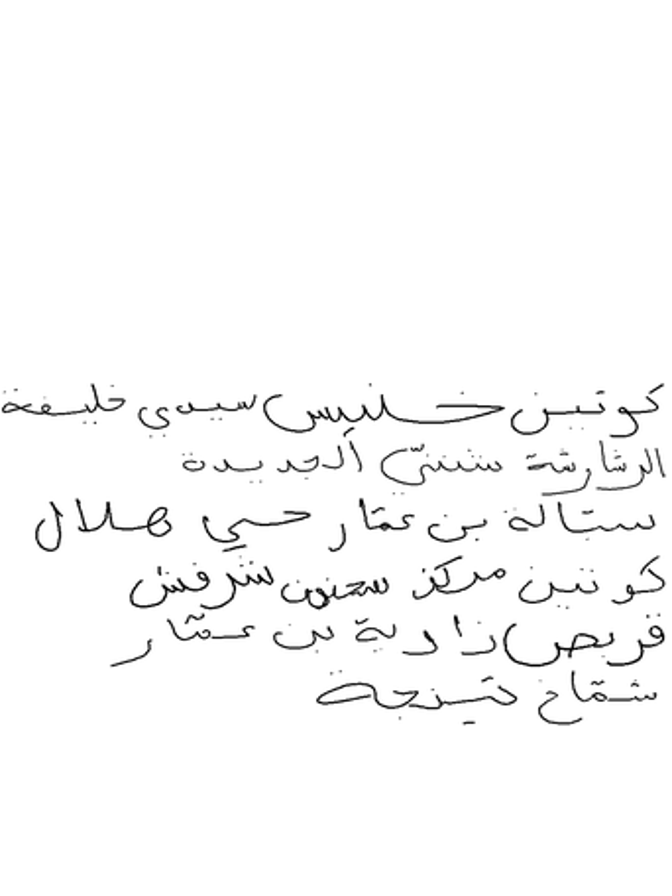 كوتين خليس سيدي خليفة
الرشارشة شنني الجديدة
ستالة بن عمّار حي هلال
كونين مركز سحنون شرفش
قربص زاوية بن عمّار
شمّاخ تيزجة